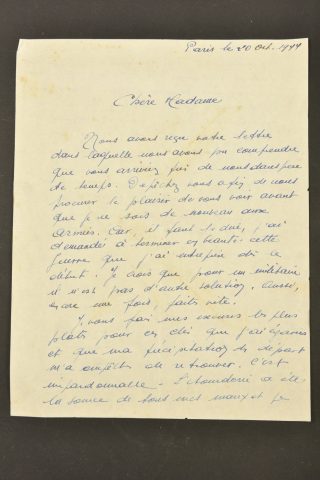 Paris le 20 Oct. 1944
Chère Madame
Nous avons reçu votre lettre
dans laquelle nous avons pu comprendre
que vous arriviez près de nous dans peu
de temps. Dépêchez vous afin de nous
procurer le plaisir de vous voir avant
que je ne sois de nouveau aux
Armées. Car, il faut le dire, j'ai
demandé à terminer en beauté cette
guerre que j'ai entreprise dès le
début. Je crois que pour un militaire
il n'est pas d'autre solution. Aussi,
encore une fois, faites vite.
Je vous fais mes excuses les plus
plats pour ces clés que j'ai égarées
et que ma précipitation de départ
m'a empêché de retrouver. C'est
impardonnable. L'étourderie a été
la source de tous mes maux et je